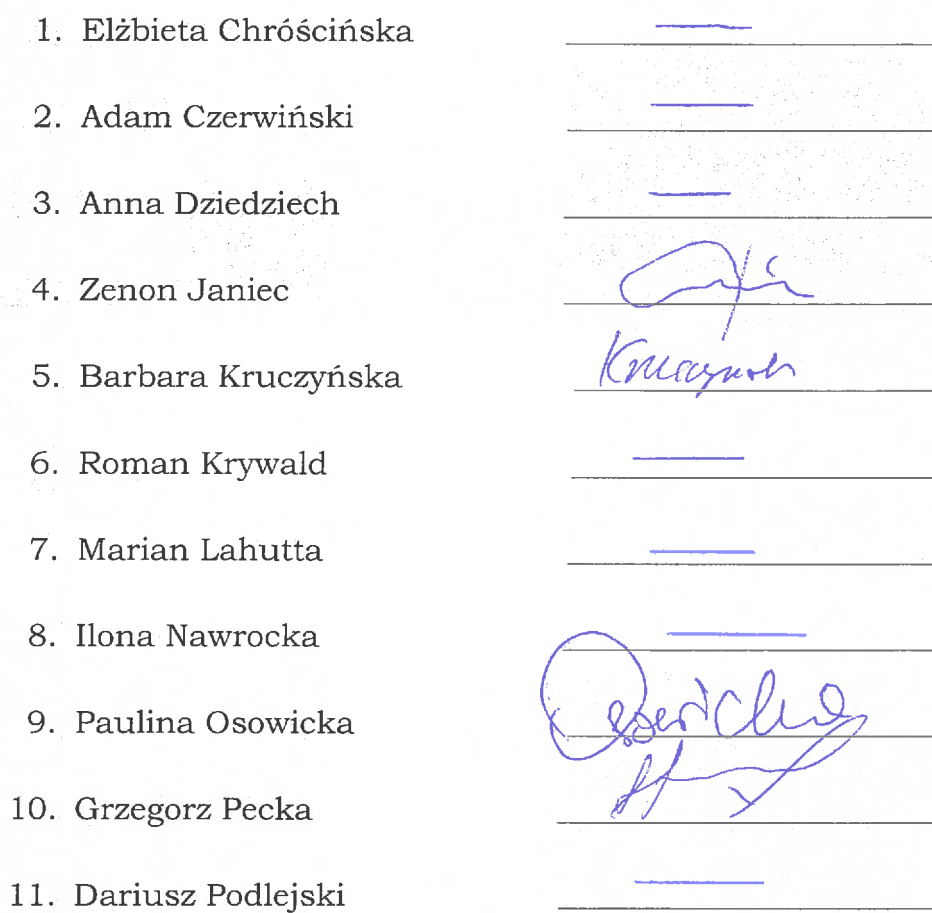 1. Elżbieta Chróścińska
2. Adam Czerwiński
3. Anna Dziedziech
4. Zenon Janiec
5. Barbara Kruczyńska
6. Roman Krywald
7. Marian Lahutta
8. Ilona Nawrocka
9. Paulina Osowicka
10. Grzegorz Pecka
11. Dariusz Podlejski